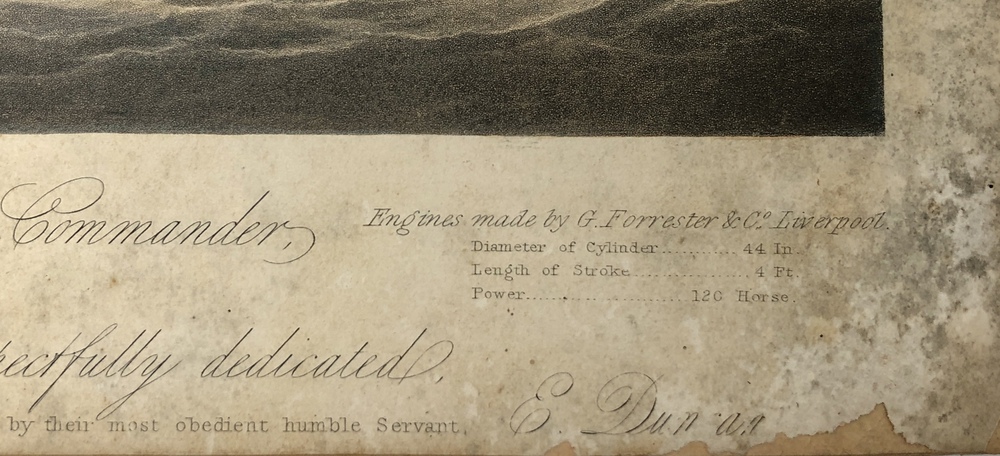 Commander,
Engines made by G. Forrester & Co. Liverpool.
Diameter of Cylinder.......... 44 In.
Length of Stroke............... 4 Ft.
Power.......................120 Horse.
pectfully dedicated,
by their most obedient humble Servant.
E. Duncan